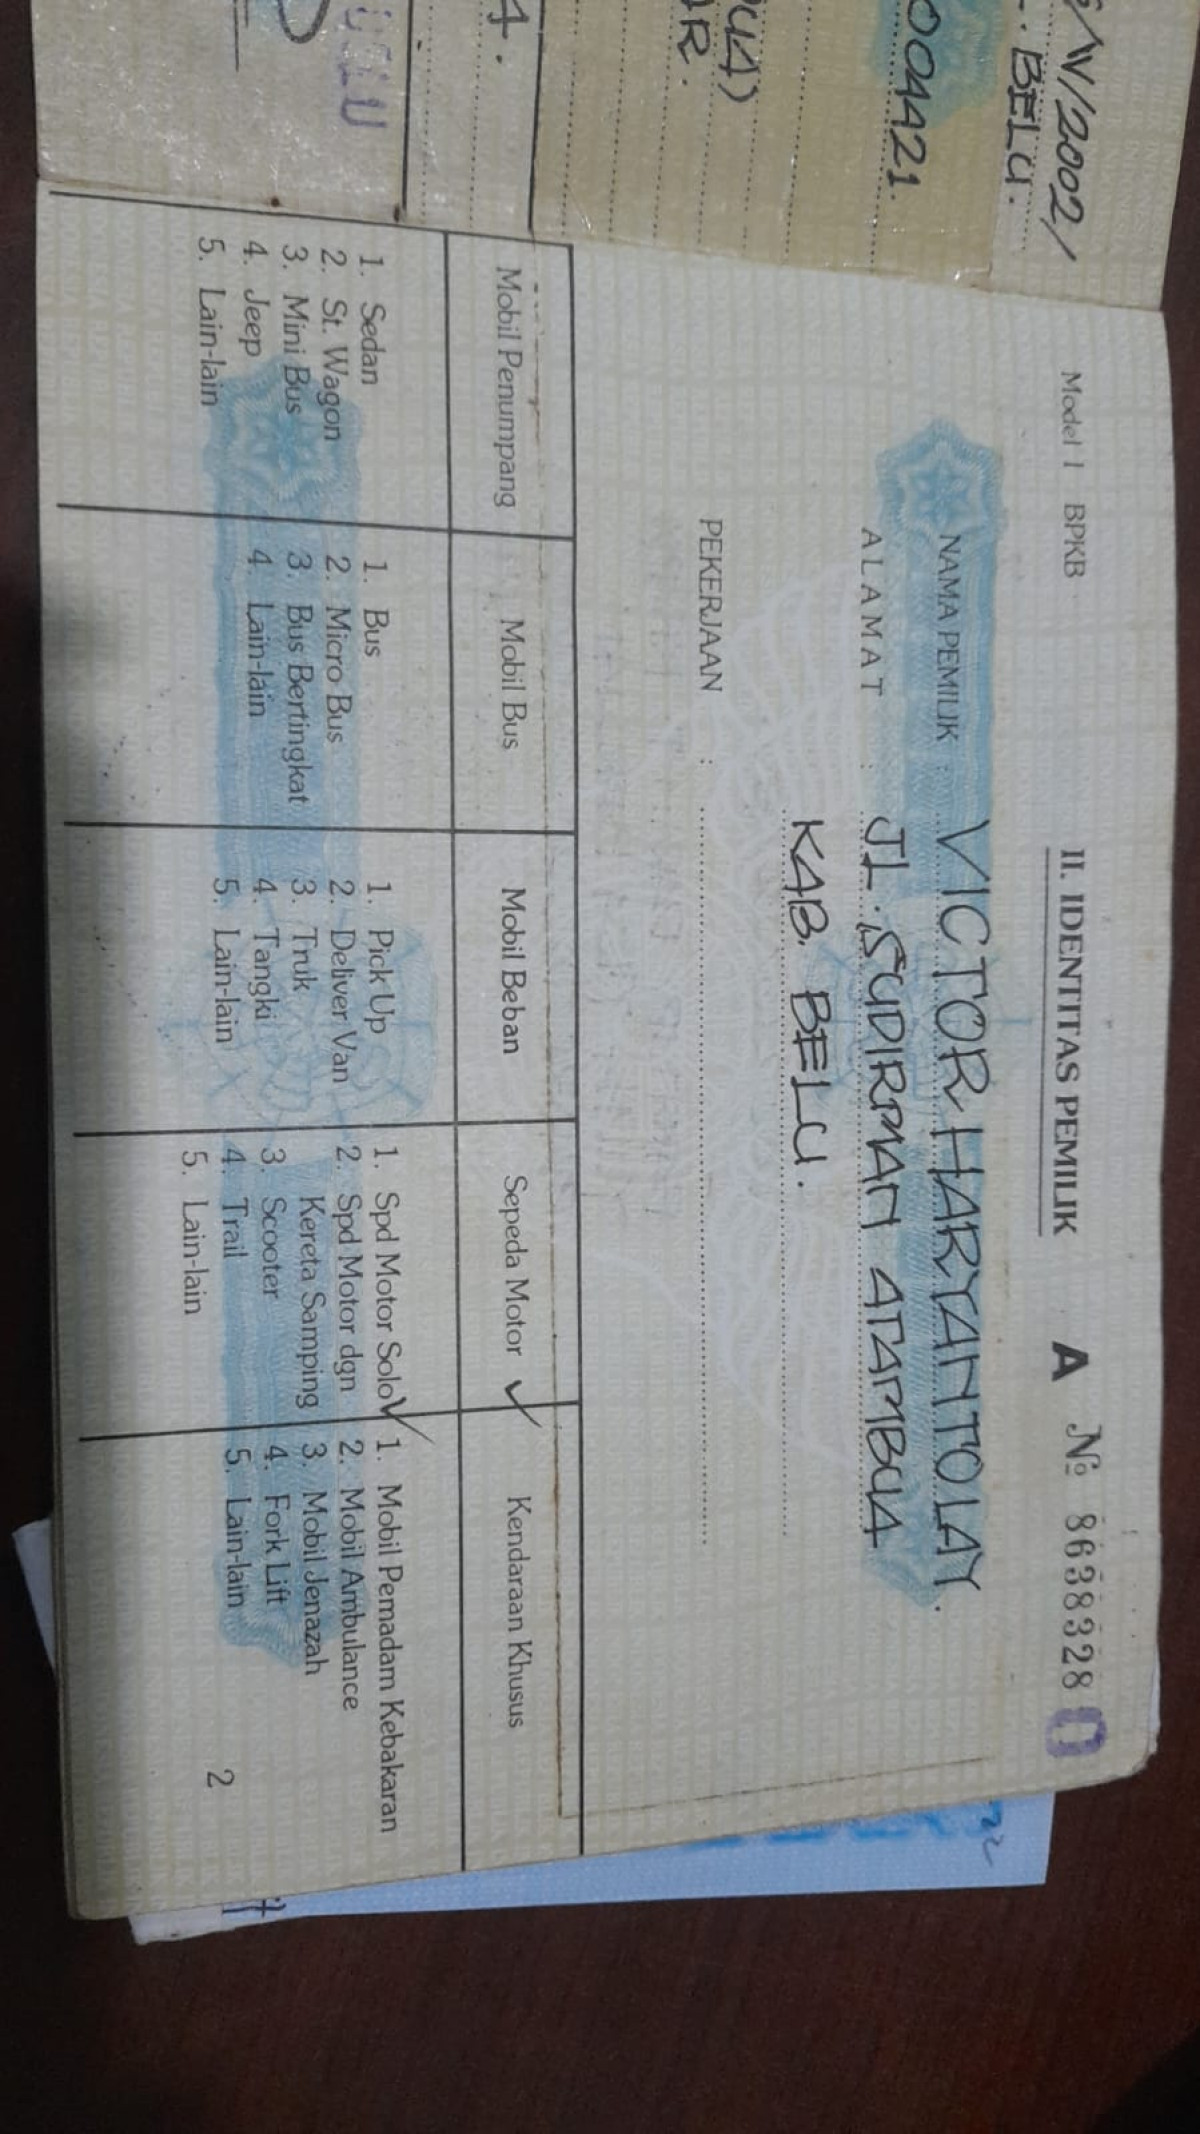 /2002/
BELU.
004421.
4.
Model 1 BPKB
II. IDENTITAS PEMILIK
A № 8638328 O
NAMA PEMILIK : VICTOR HARYANTOLAY.
ALAMAT : JL. SUDIRMAN ATAMBUA
KAB. BELU.
PEKERJAAN :
Mobil Penumpang
1. Sedan
2. St. Wagon
3. Mini Bus
4. Jeep
5. Lain-lain
Mobil Bus
1. Bus
2. Micro Bus
3. Bus Bertingkat
4. Lain-lain
Mobil Beban
1. Pick Up
2. Deliver Van
3. Truk
4. Tangki
5. Lain-lain
Sepeda Motor ✓
1. Spd Motor Solo ✓
2. Spd Motor dgn
Kereta Samping
3. Scooter
4. Trail
5. Lain-lain
Kendaraan Khusus
1. Mobil Pemadam Kebakaran
2. Mobil Ambulance
3. Mobil Jenazah
4. Fork Lift
5. Lain-lain
2